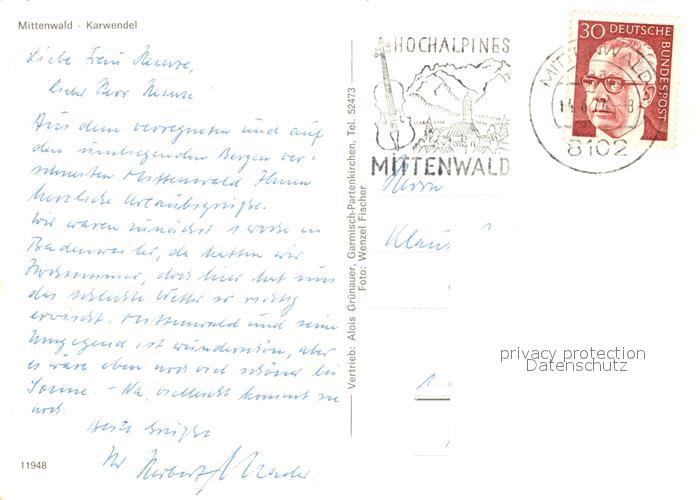 Mittenwald - Karwendel
Liebe Frau
lieber Herr
Aus dem verregneten und auf
den umliegenden Bergen ver-
schneiten Mittenwald Ihnen
herzliche Urlaubsgrüße.
Wir waren zunächst 1 Woche in
Badenweiler, da hatten wir
Hochsommer, doch hier hat uns
das schlechte Wetter so richtig
erwischt. Mittenwald und seine
Umgegend ist wunderschön, aber
es wäre eben noch viel schöner bei
Sonne. - Na, vielleicht kommt sie
noch.
Beste Grüße
Ihr Herbert
11948
Vertrieb: Alois Grünauer, Garmisch-Partenkirchen, Tel. 52473
Foto: Wenzel Fischer
HOCHALPINES
MITTENWALD
MITTENWALD
8102
30 DEUTSCHE
BUNDESPOST
Herrn
Klaus
privacy protection
Datenschutz